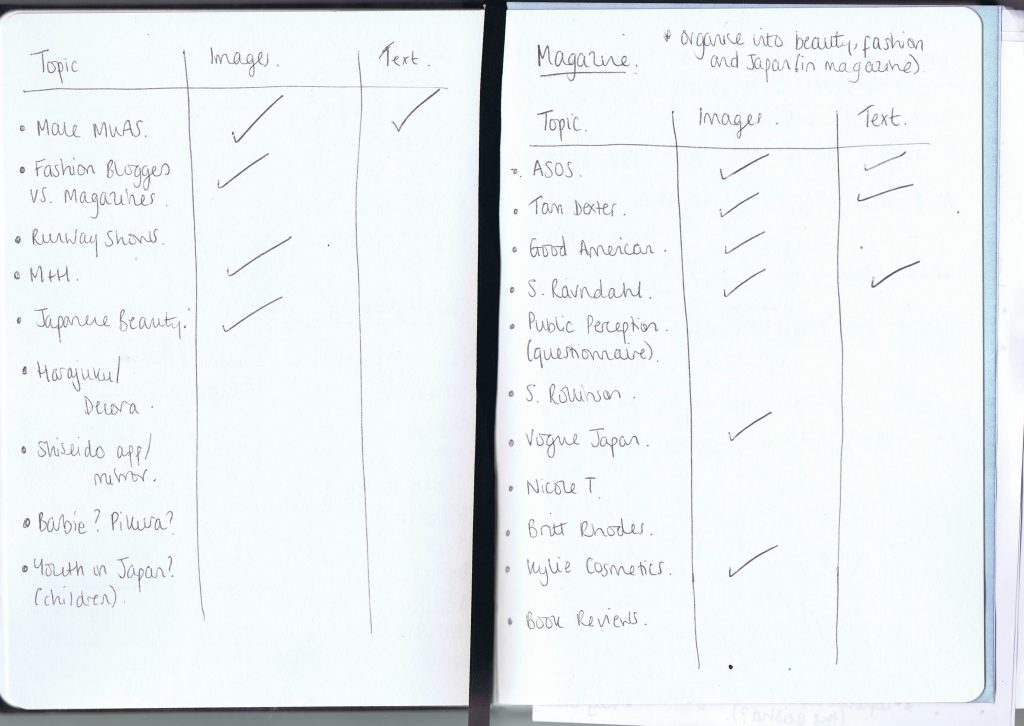 Topic Images. Text.
• Male MUAS. ✓ ✓
• Fashion Blogges ✓
vs. Magazines.
• Runway Shows.
• M+H. ✓
• Japanese Beauty. ✓
• Harajuku/
Decora.
• Shiseido app/
mirror.
• Barbie? Pikura?
• Youth in Japan?
(children).
Magazine.
* organise into beauty, fashion
and Japan (in magazine).
Topic. Images. Text.
• ASOS. ✓ ✓
• Tan Dexter. ✓ ✓
• Good American. ✓
• S. Ravndahl. ✓ ✓
• Public Perception.
(questionnaire).
• S. Robinson.
• Vogue Japan. ✓
• Nicole T.
• Britt Rhodes.
• Kylie Cosmetics. ✓
• Book Reviews.